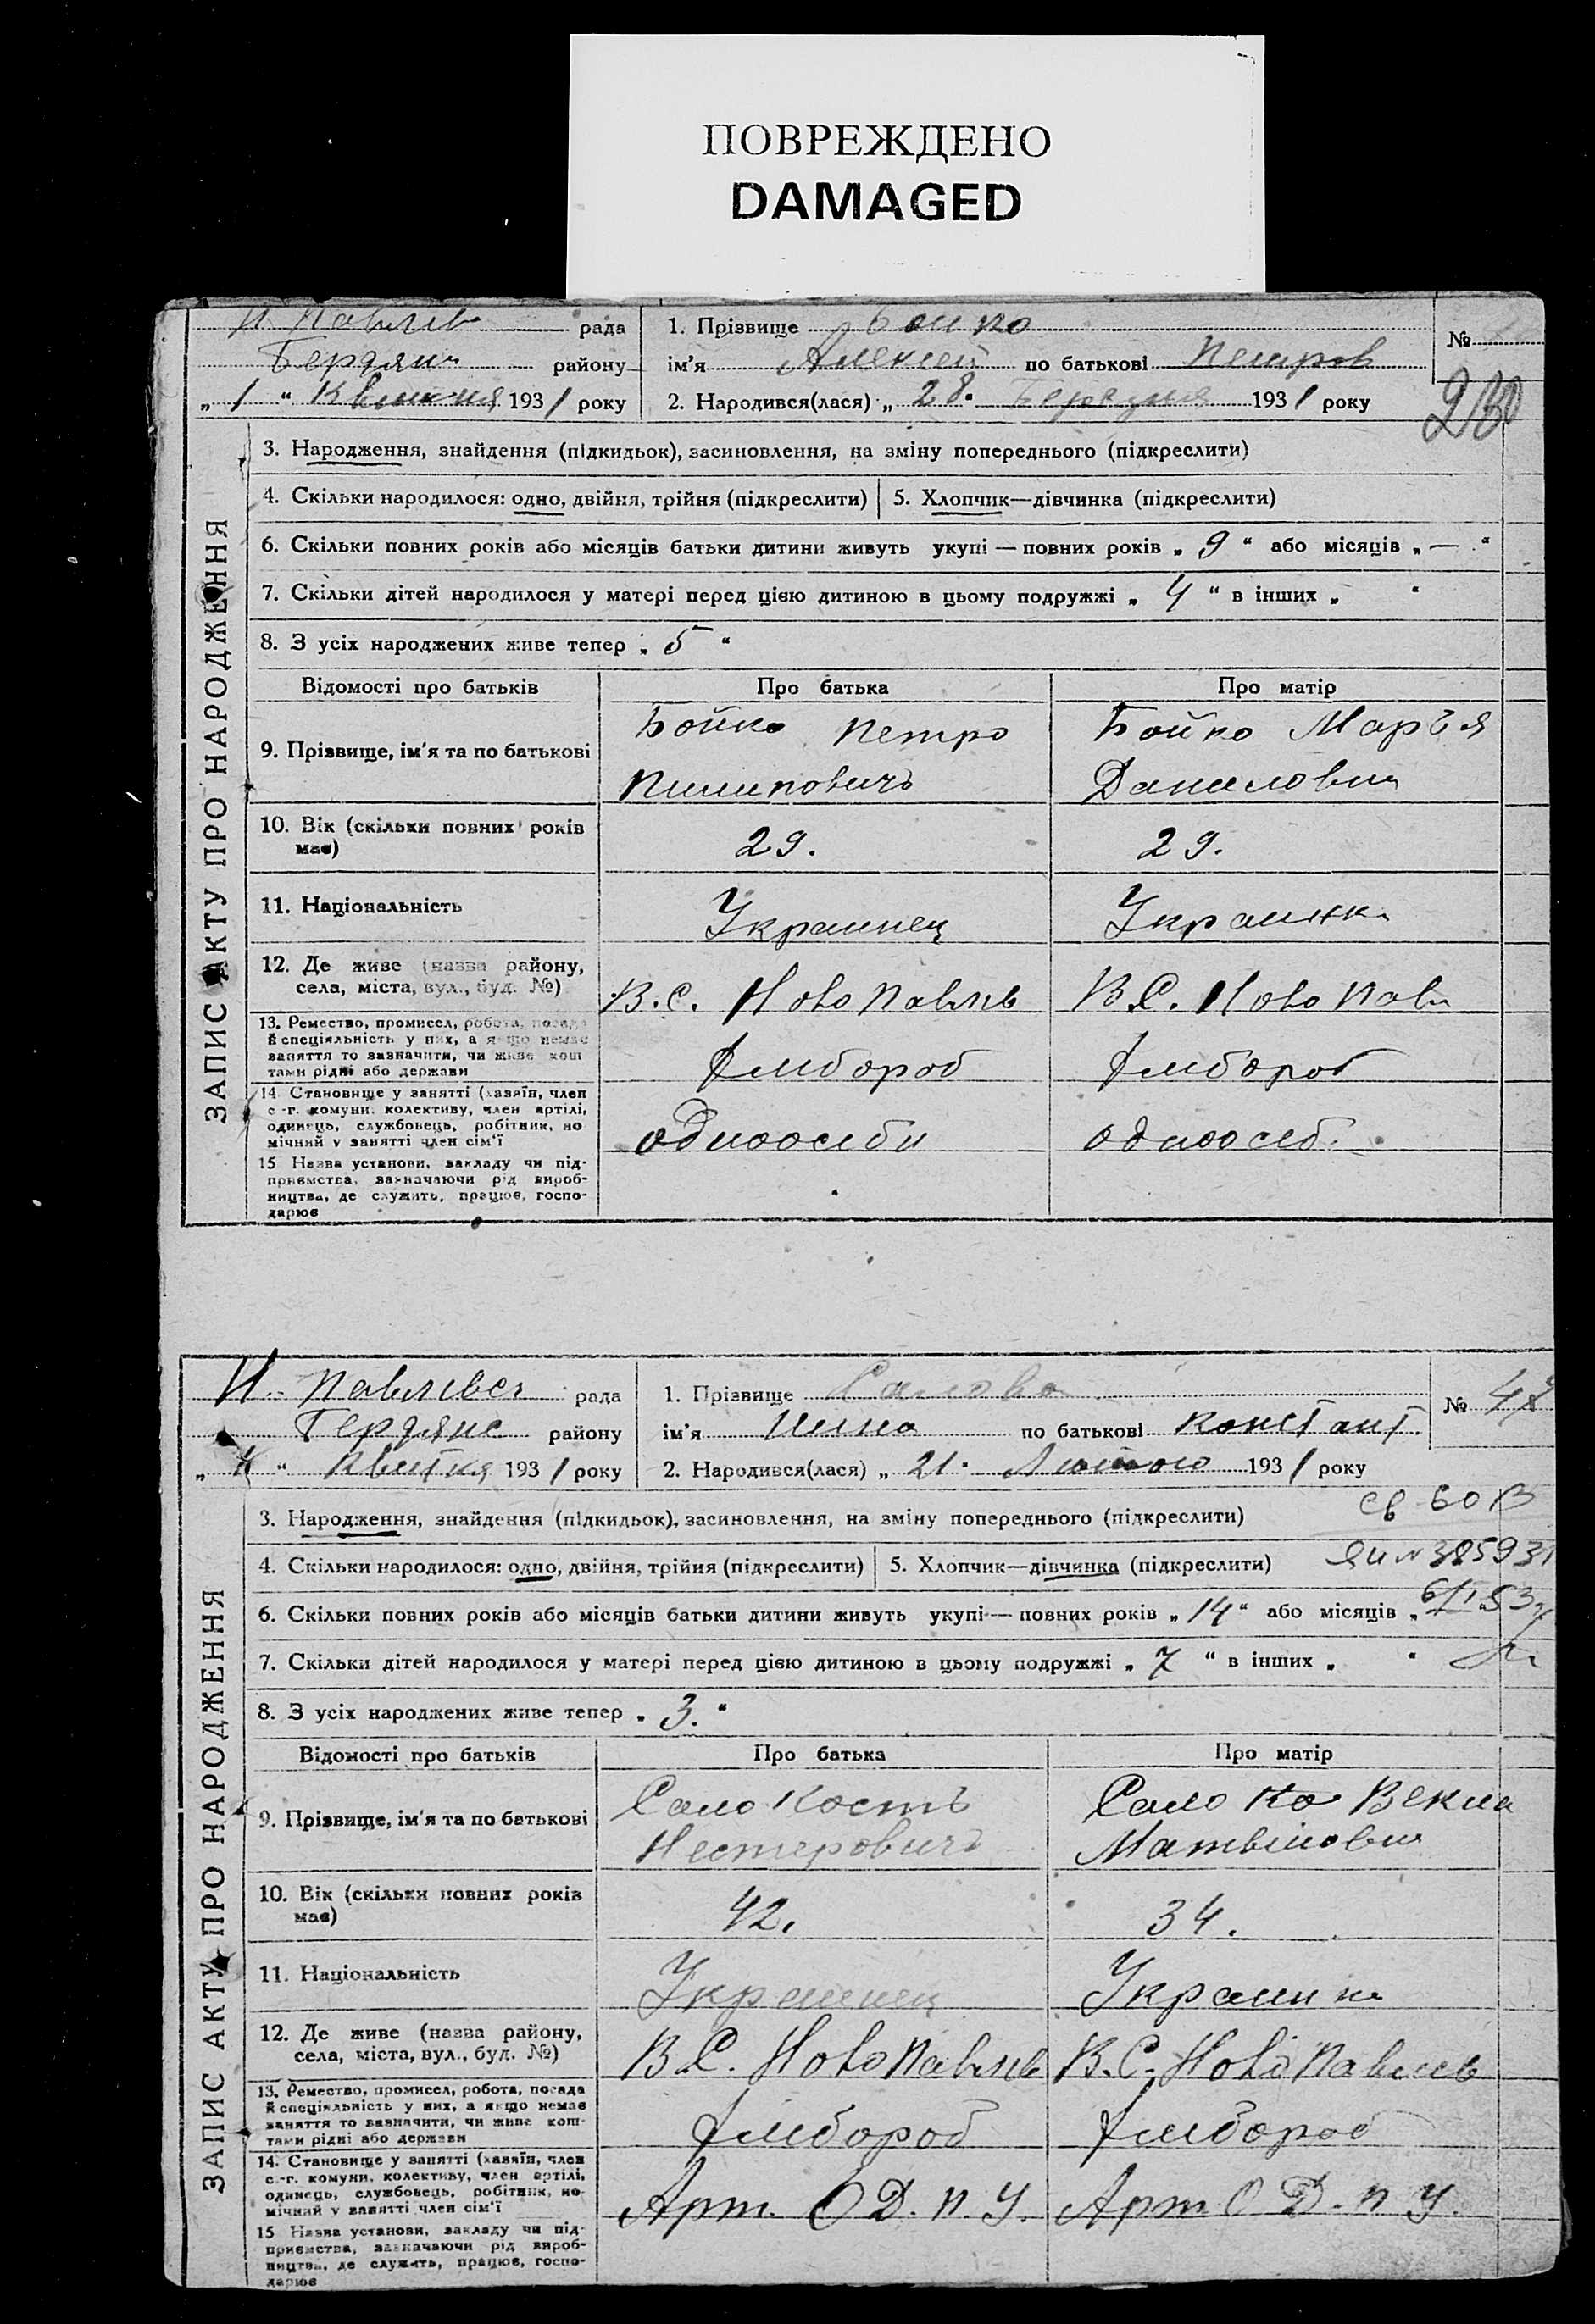 ПОВРЕЖДЕНО
DAMAGED
Н. Павлів рада
Бердян району
„ 1 “ Квитня 1931 року
1. Прізвище Бойко
ім'я Алексей по батькові Петров
2. Народився(лася) „ 28. Березня 1931 року
№
230
ЗАПИС АКТУ ПРО НАРОДЖЕННЯ
3. Народження, знайдення (підкидьок), засиновлення, на зміну попереднього (підкреслити)
4. Скільки народилося: одно, двійня, трійня (підкреслити) 5. Хлопчик—дівчинка (підкреслити)
6. Скільки повних років або місяців батьки дитини живуть укупі — повних років „ 9 “ або місяців „ — “
7. Скільки дітей народилося у матері перед цією дитиною в цьому подружжі „ 4 “ в інших „ “
8. З усіх народжених живе тепер „ 5 “
Відомості про батьків Про батька Про матір
9. Прізвище, ім'я та по батькові
Бойко Петро
Пилиповичъ
Бойко Марья
Даниловна
10. Вік (скільки повних років має)
29.
29.
11. Національність
Украинец
Украинк
12. Де живе (назва району, села, міста, вул., буд. №)
В.С. Ново Павлів
В.С. Ново Павл
13. Ремество, промисел, робота, посада й спеціяльність у них, а якщо немає заняття то зазначити, чи живе коштами рідні або держави
Хлибороб
Хлибороб
14. Становище у занятті (хазяїн, член с.-г. комуни, колективу, член артілі, одинець, службовець, робітник, помічний у занятті член сім'ї
одноосеби
одноосеб.
15. Назва установи, закладу чи підприємства, зазначаючи рід виробництва, де служить, працює, господарює
Н. Павлівсь рада
Бердянс району
Квитня 1931 року
1. Прізвище Салова
ім'я Нина по батькові Констант.
2. Народився(лася) „ 21. Лютого 1931 року
№
3. Народження, знайдення (підкидьок), засиновлення, на зміну попереднього (підкреслити)
4. Скільки народилося: одно, двійня, трійня (підкреслити) 5. Хлопчик—дівчинка (підкреслити)
6. Скільки повних років або місяців батьки дитини живуть укупі — повних років „ 14 “ або місяців „
7. Скільки дітей народилося у матері перед цією дитиною в цьому подружжі „ 7 “ в інших „ “
8. З усіх народжених живе тепер „ 3. “
ЗАПИС АКТУ ПРО НАРОДЖЕННЯ
Відомості про батьків Про батька Про матір
9. Прізвище, ім'я та по батькові
Сало Кость
Нестеровичъ
Сало
Матвіновна
10. Вік (скільки повних років має)
42.
34.
11. Національність
Украинец
Украинк
12. Де живе (назва району, села, міста, вул., буд. №)
В С. Ново Павлів
В.С. Ново Павлів
13. Ремество, промисел, робота, посада й спеціяльність у них, а якщо немає заняття то зазначити, чи живе коштами рідні або держави
Хлибороб
Хлибороб
14. Становище у занятті (хазяїн, член с.-г. комуни, колективу, член артілі, одинець, службовець, робітник, помічний у занятті член сім'ї
Арт. О Д. П. У.
Арт О Д. П. У.
15. Назва установи, закладу чи підприємства, зазначаючи рід виробництва, де служить, працює, господарює